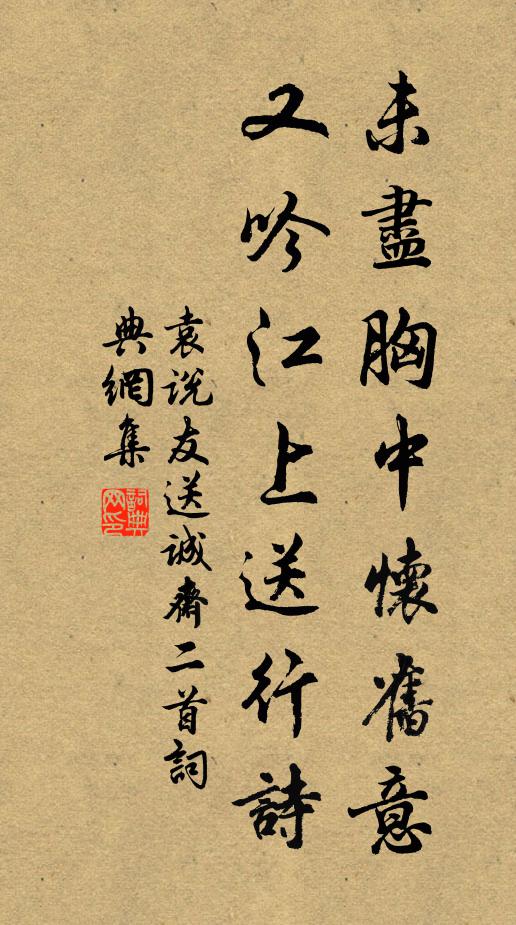 未盡胸中懷舊意
又吟江上送行詩
袁説友送誠齋二首詞
典網集
詞典網印